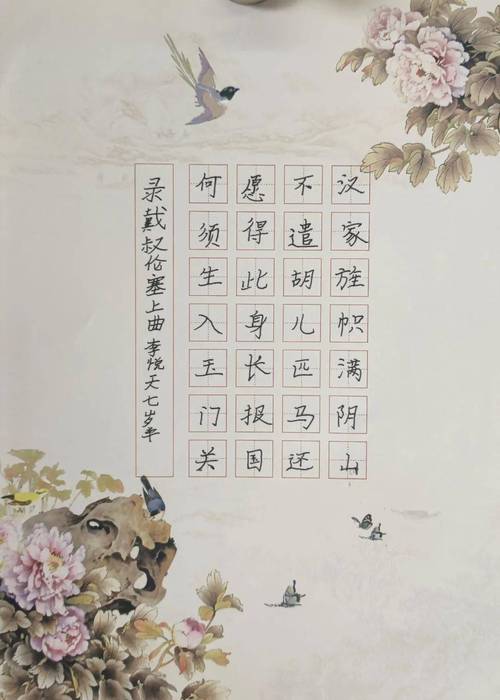 汉家旌帜满阴山
不遣胡儿匹马还
愿得此身长报国
何须生入玉门关
录戴叔伦塞上曲 李悦天七岁半